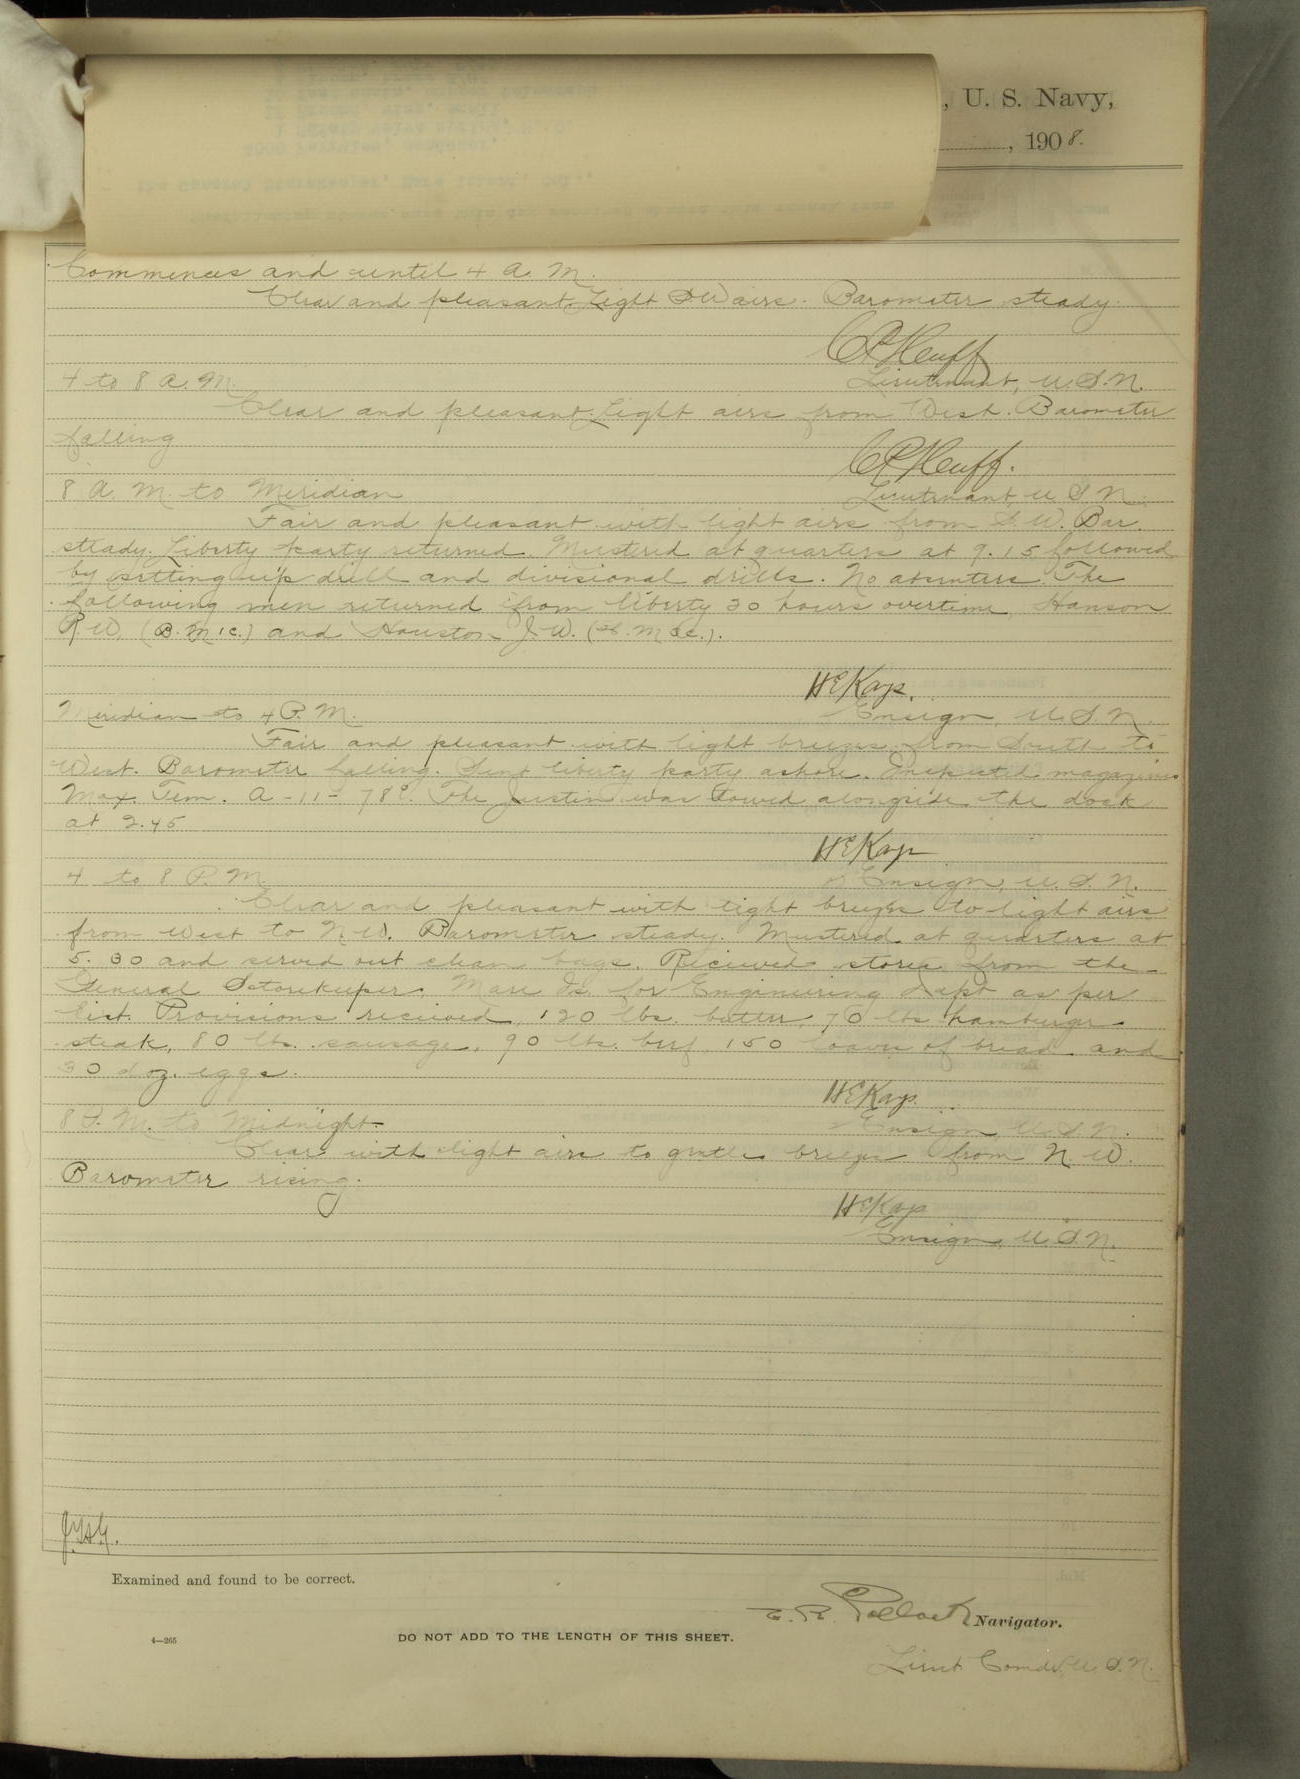 , U. S. Navy,
, 1908.
Commences and until 4 A. M.
Clear and pleasant. Light SW airs. Barometer steady.
C P Huff
Lieutenant, U.S.N.
4 to 8 A. M.
Clear and pleasant. Light airs from West. Barometer
falling
C P Huff.
8 A. M. to Meridian
Lieutenant, U S N.
Fair and pleasant with light airs from S. W. Bar
steady. Liberty party returned. Mustered at quarters at 9.15 followed
by setting up drill and divisional drills. No absentees. The
following men returned from liberty 30 hours overtime, Hanson
R. W. (B. M 1c.) and Houston J. W. ( ).
H E Kays.
Meridian to 4 P. M.
Ensign, U. S. N.
Fair and pleasant with light breezes from South to
West. Barometer falling. Sent liberty party ashore. Inspected magazines
Max. Tem. A-11- 78°. The Justin was towed alongside the dock
at 2.45
H E Kays
4 to 8 P. M.
Ensign, U. S. N.
Clear and pleasant with light breezes to light airs
from West to N. W. Barometer steady. Mustered at quarters at
5.30 and served out clean bags. Received stores from the
General Storekeeper, Mare Is. for Engineering Dept as per
list. Provisions received, 120 lbs. butter, 70 lbs hamburger
steak, 80 lbs. sausage, 90 lbs. beef, 150 loaves of bread and
30 doz. eggs.
H E Kays.
8 P. M. to Midnight
Ensign, U. S. N.
Clear with light airs to gentle breezes from N. W.
Barometer rising.
H E Kays
Ensign, U. S. N.
Examined and found to be correct.
E. R. Pollock Navigator.
4—265
DO NOT ADD TO THE LENGTH OF THIS SHEET.
Lieut Comdr, U. S. N.